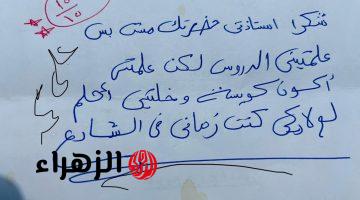 ١٠/١٠
شكرا استاذتى حضرتك مش بس
علمتينى الدروس لكن علمتنى
أكون كويسه وخلتينى احلم
لولاكى كنت زمانى فى الشارع
الزهراء